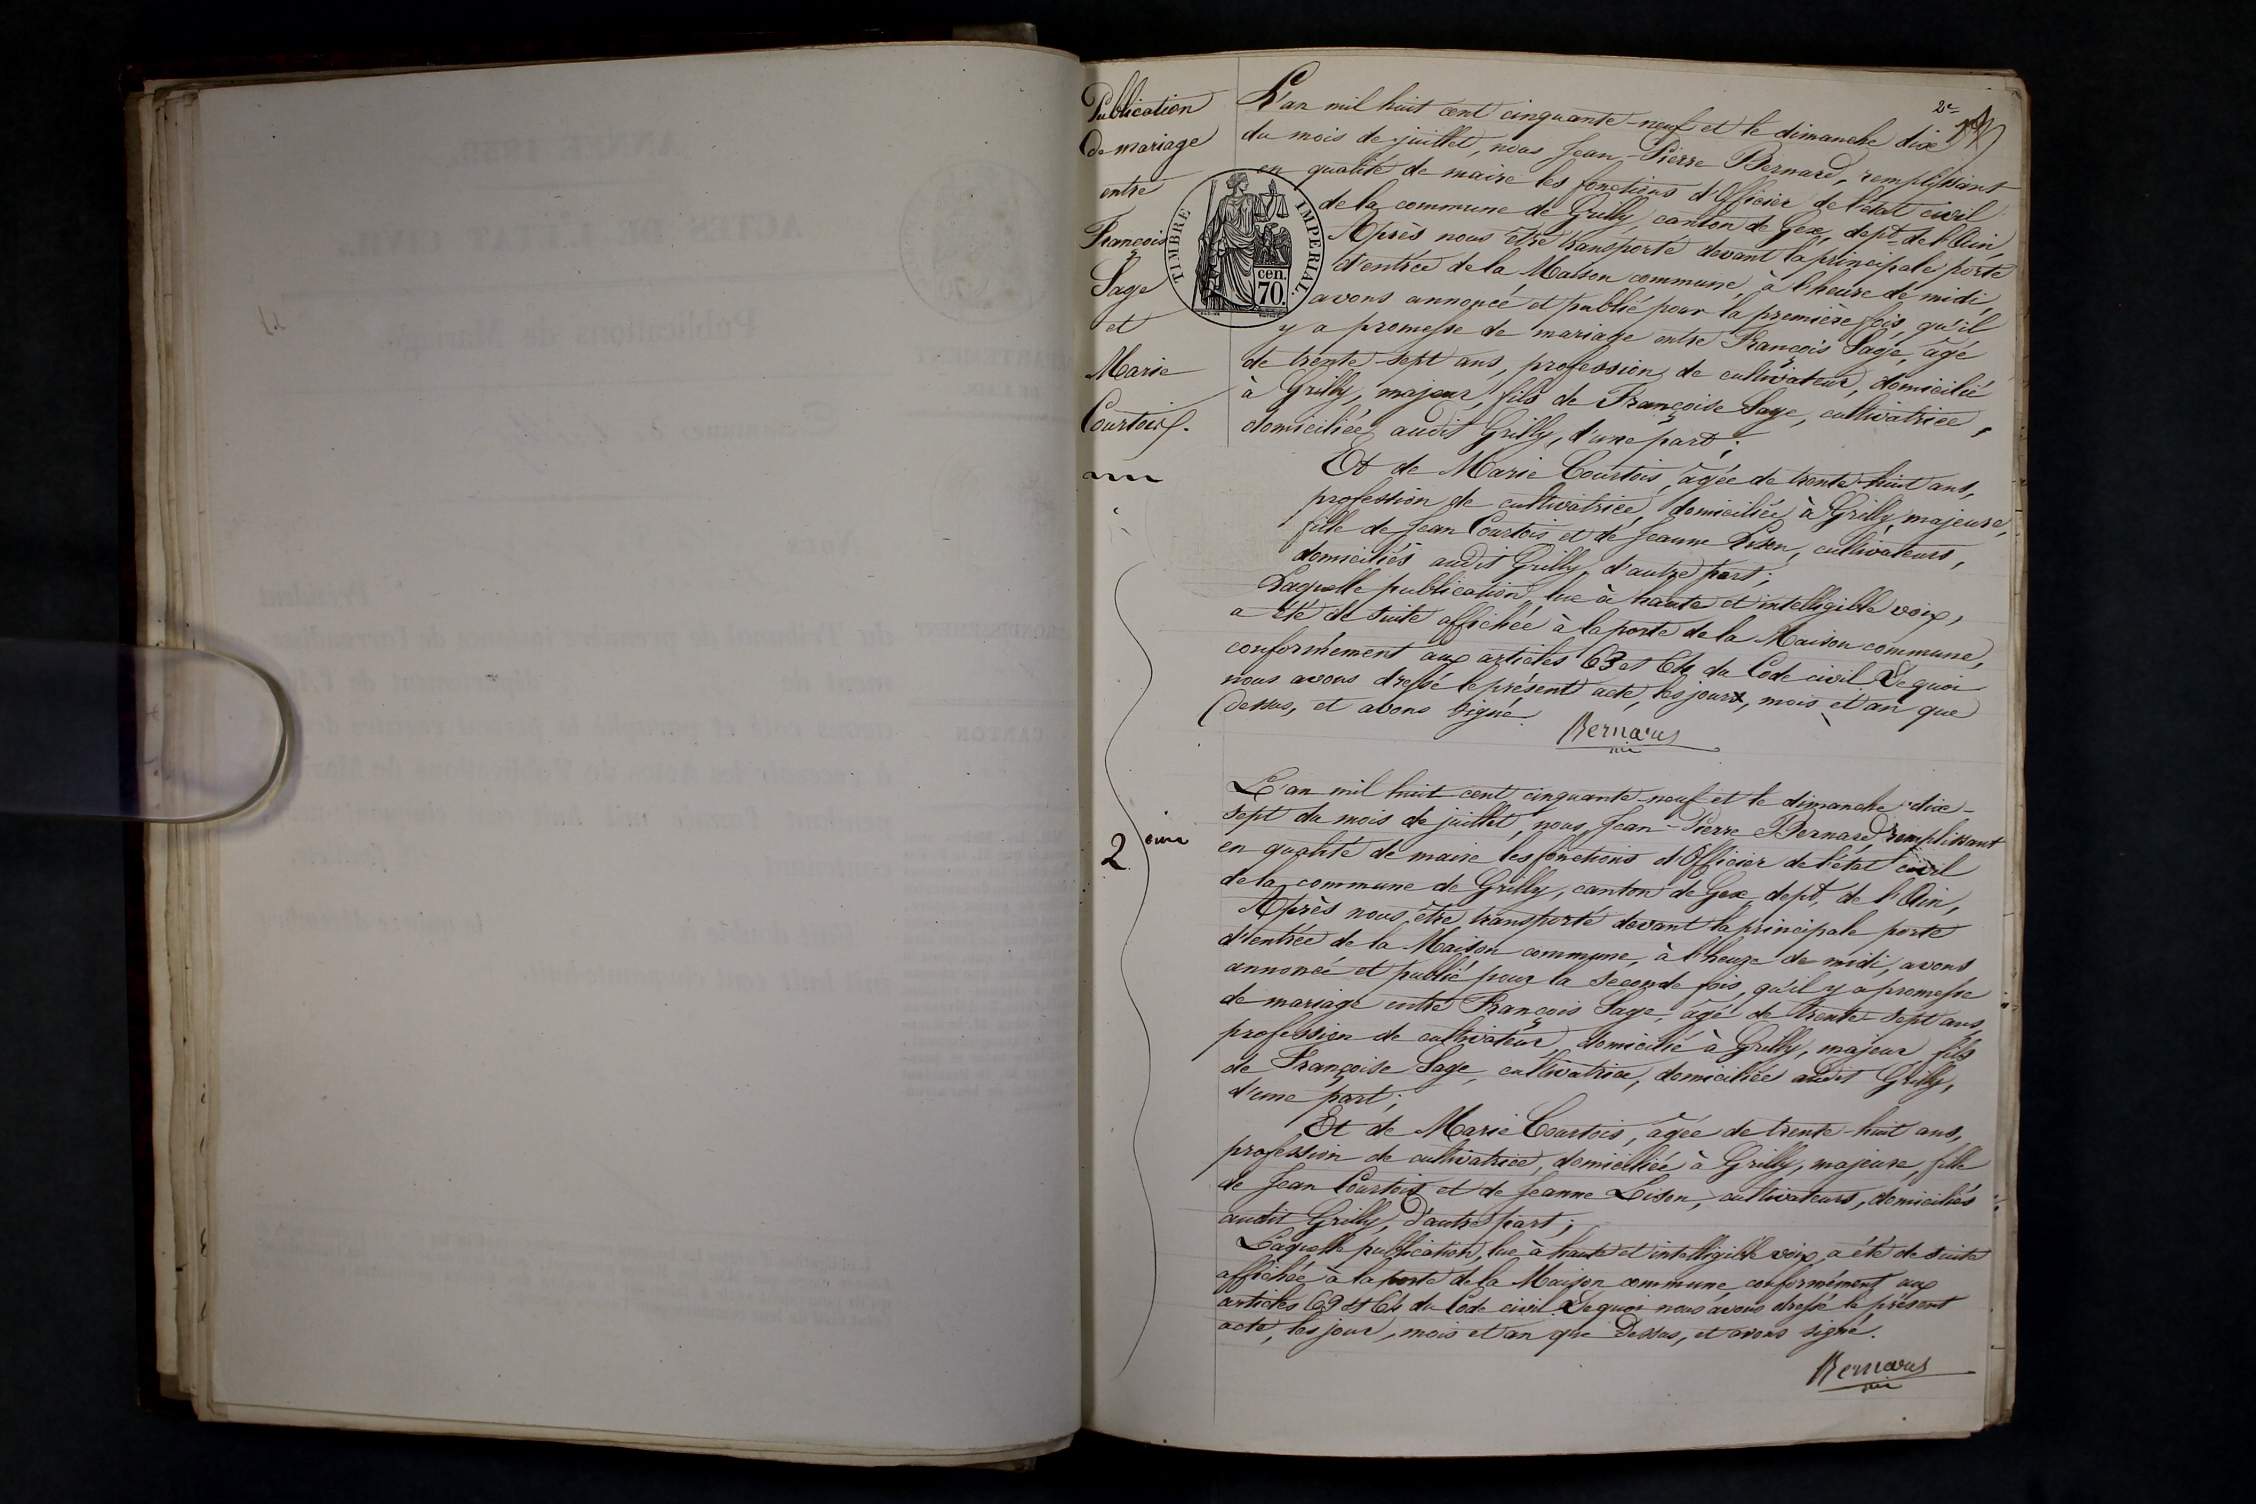 Publication
de mariage
entre
François
Sage
et
Marie
Courtois.
2e
L'an mil huit cent cinquante-neuf et le dimanche dix
du mois de juillet, nous Jean-Pierre Bernard, remplissant
en qualité de maire les fonctions d'Officier de l'état civil
de la commune de Grilly, canton de Gex, dept. de l'Ain,
Après nous être transporté devant la principale porte
d'entrée de la Maison commune, à l'heure de midi,
avons annoncé et publié pour la première fois, qu'il
y a promesse de mariage entre François Sage, âgé
de trente-sept ans, profession de cultivateur, domicilié
à Grilly, majeur, fils de Françoise Sage, cultivatrice,
domiciliée audit Grilly, d'une part;
TIMBRE IMPERIAL.
cen.
70.
Et de Marie Courtois, âgée de trente-huit ans,
profession de cultivatrice, domiciliée à Grilly, majeure,
fille de Jean Courtois et de Jeanne Lison, cultivateurs,
domiciliés audit Grilly, d'autre part;
Laquelle publication, lue à haute et intelligible voix,
a été de suite affichée à la porte de la Maison commune,
conformément aux articles 63 et 64 du Code civil. De quoi
nous avons dressé le présent acte, les jour, mois et an que
dessus, et avons signé.
Bernard
2eme
L'an mil huit cent cinquante-neuf et le dimanche dix-
sept du mois de juillet, nous Jean-Pierre Bernard, remplissant
en qualité de maire les fonctions d'Officier de l'état civil
de la commune de Grilly, canton de Gex, dept. de l'Ain,
Après nous être transporté devant la principale porte
d'entrée de la Maison commune, à l'heure de midi, avons
annoncé et publié pour la seconde fois, qu'il y a promesse
de mariage entre François Sage, âgé de trente-sept ans,
profession de cultivateur, domicilié à Grilly, majeur, fils
de Françoise Sage, cultivatrice, domiciliée audit Grilly,
d'une part;
Et de Marie Courtois, âgée de trente-huit ans,
profession de cultivatrice, domiciliée à Grilly, majeure, fille
de Jean Courtois et de Jeanne Lison, cultivateurs, domiciliés
audit Grilly, d'autre part;
Laquelle publication, lue à haute et intelligible voix, a été de suite
affichée à la porte de la Maison commune, conformément aux
articles 63 et 64 du Code civil. De quoi nous avons dressé le présent
acte, les jour, mois et an que dessus, et avons signé.
Bernard